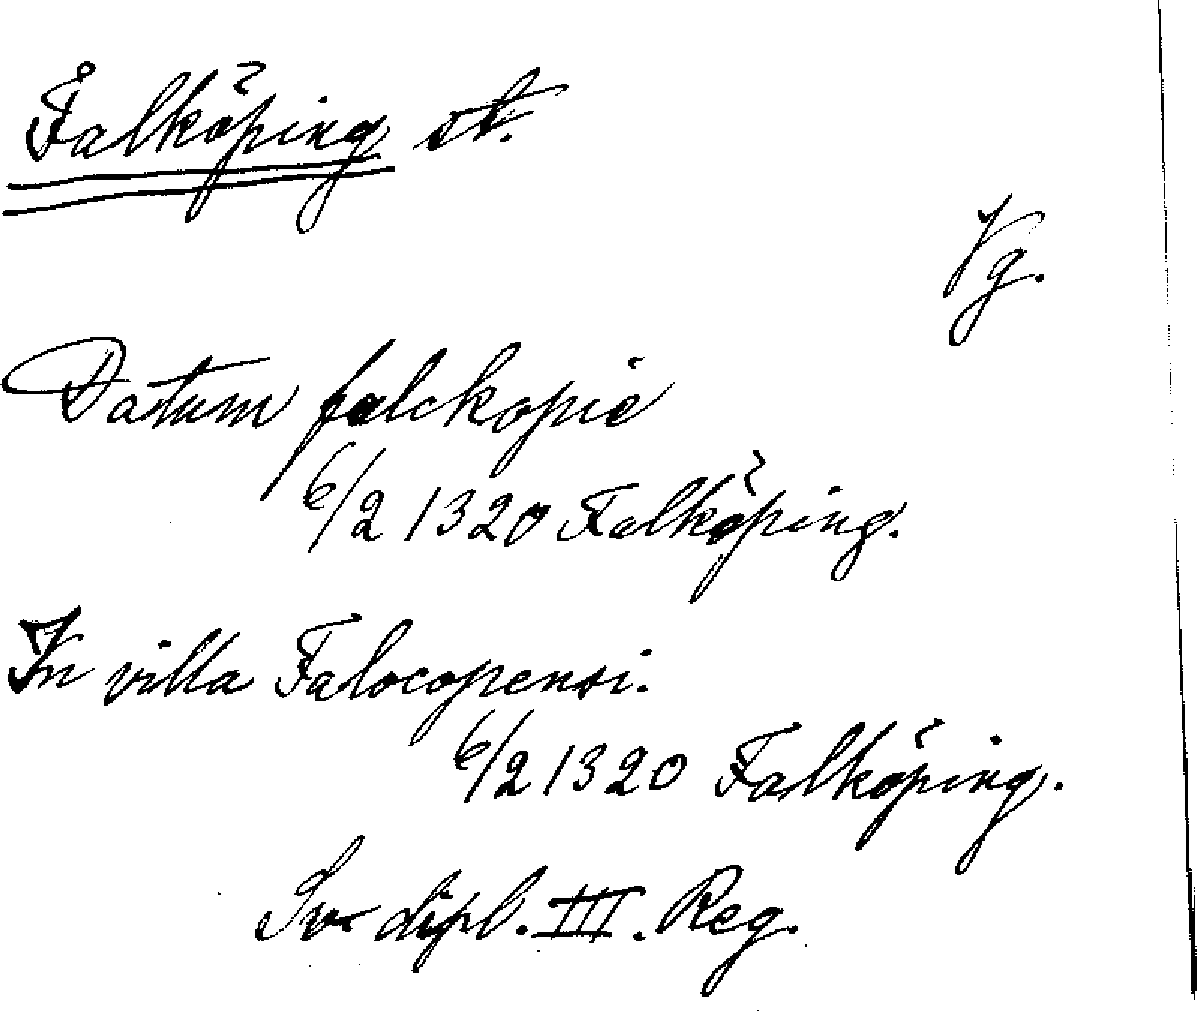 Falköping st.
Vg.
Datum falckopie
6/2 1320 Falköping.
In villa Falocopensi.
6/2 1320 Falköping.
Sv dipl. III. Reg.